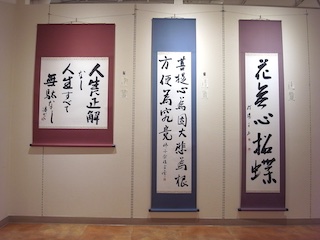 花無心招蝶
菩提心為因大悲為根
方便為究竟
人生に正解
なし
人生すべて
無駄なし